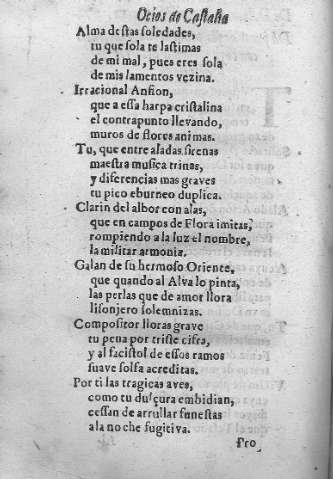 Ocios de Castalia
Alma destas soledades,
tu que sola te lastimas
de mi mal, pues eres sola
de mis lamentos vezina.
Irracional Anfion,
que a essa harpa cristalina
el contrapunto llevando,
muros de flores animas.
Tu, que entre aladas sirenas
maestra musica trinas,
y diferencias mas graves
tu pico eburneo duplica.
Clarin del albor con alas,
que en campos de Flora imitas,
rompiendo a la luz el nombre,
la militar armonia.
Galan de su hermoso Oriente,
que quando al Alva lo pinta,
las perlas que de amor llora
lisonjero solemnizas.
Compositor lloras grave
tu pena por triste cifra,
y al facistol de essos ramos
suave solfa acreditas.
Por ti las tragicas aves,
como tu dulçura embidian,
cessan de arrullar funestas
a la noche fugitiva.
Pro